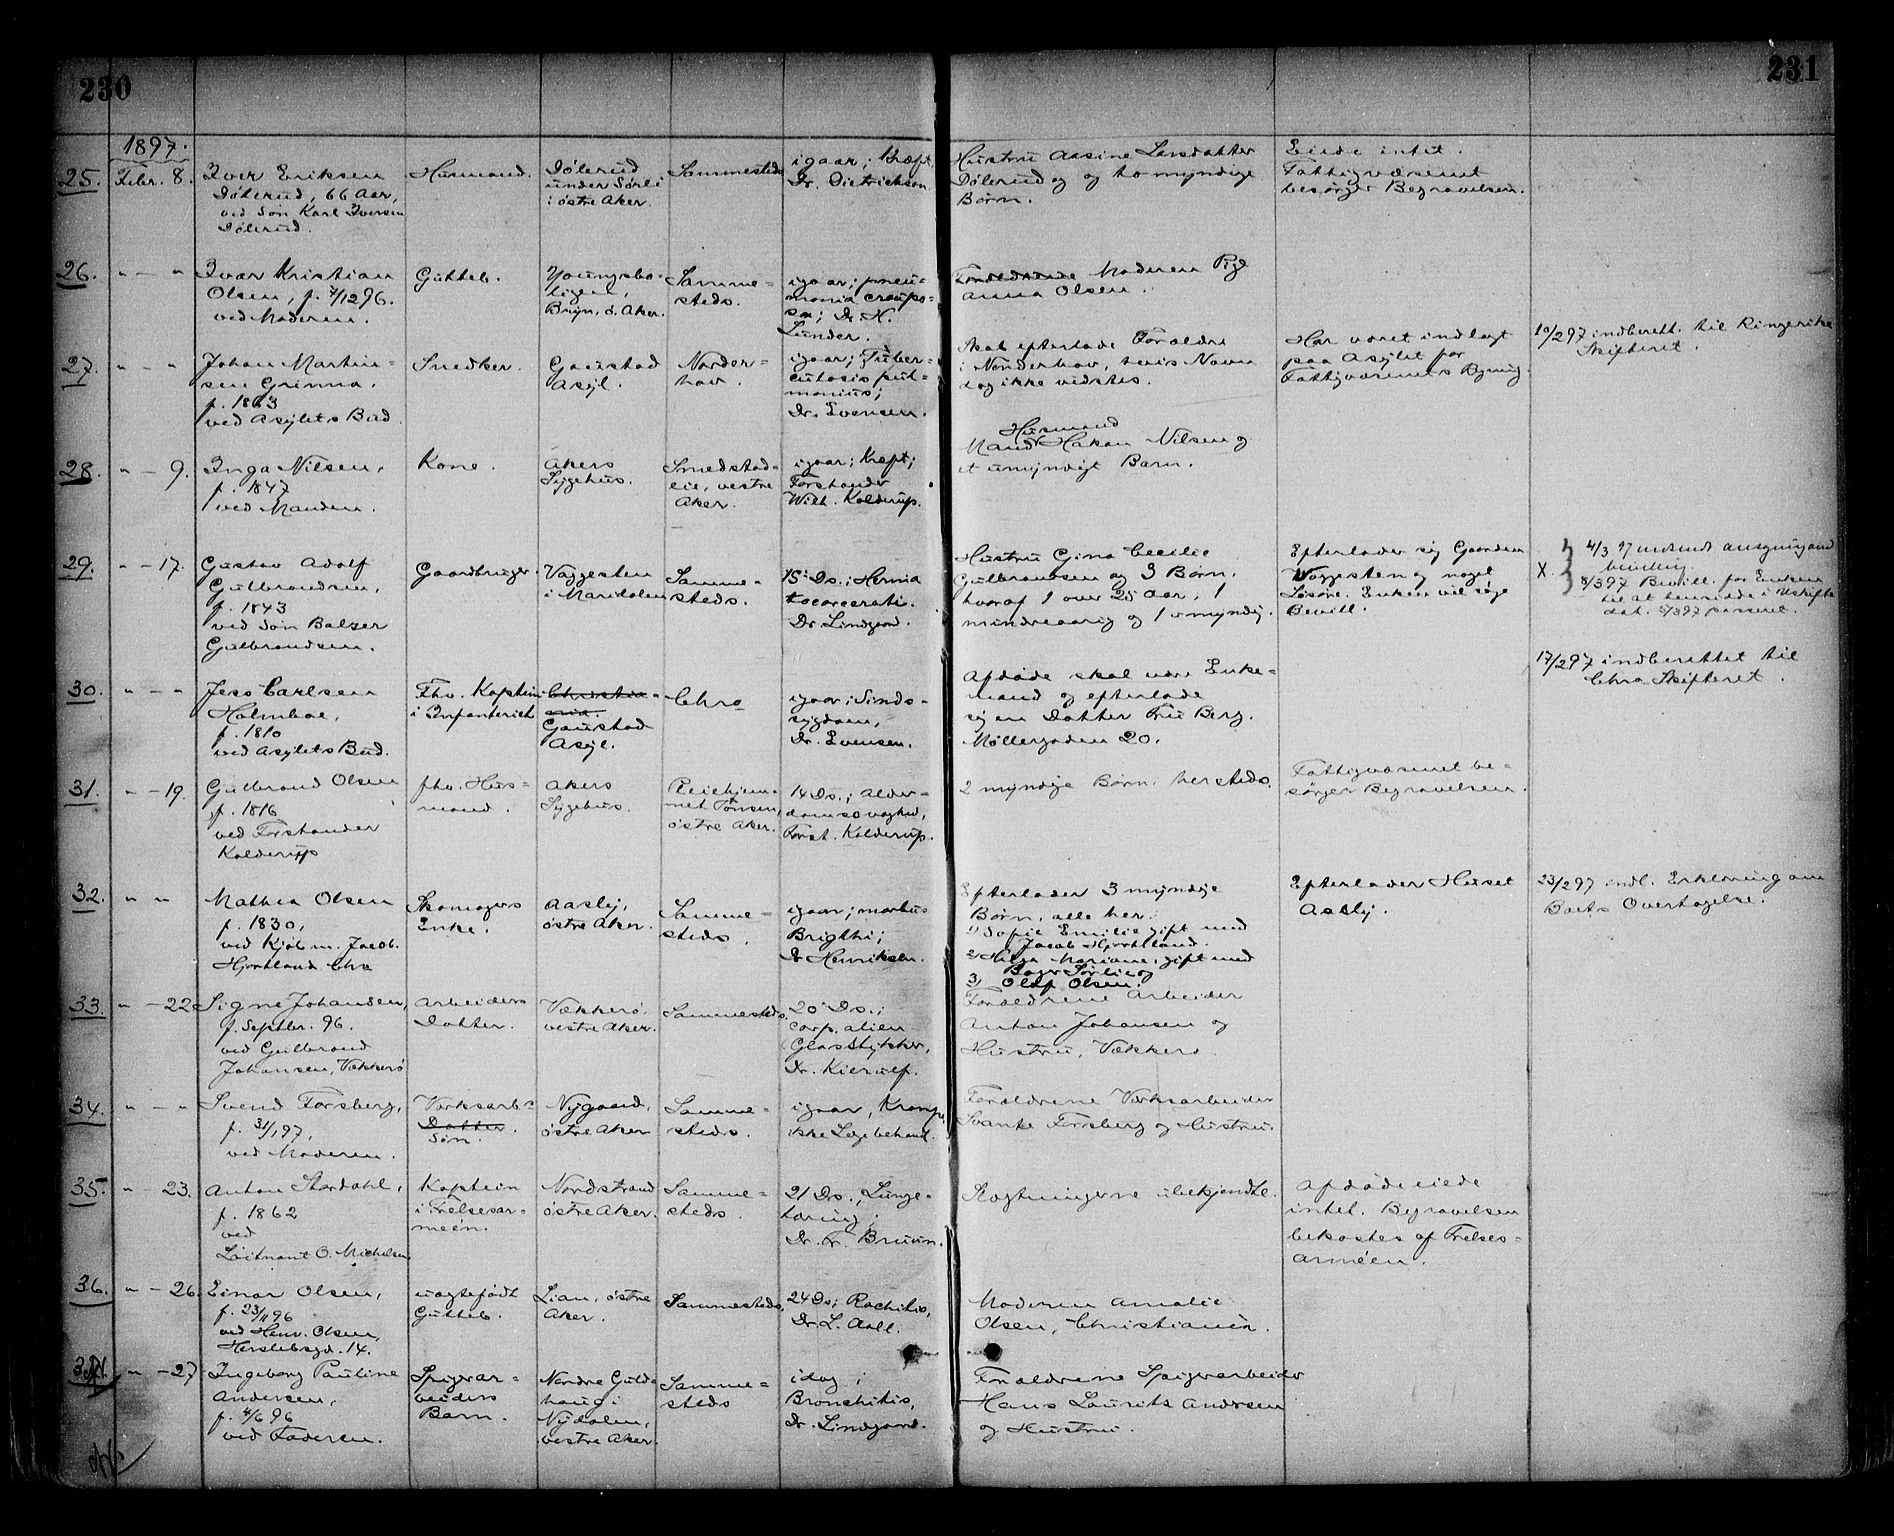 230
231
1897.
25. Febr. 8.
Iver Eriksen
Dølerud, 66 Aar,
ved Søn Karl Iversen
Dølerud.
Husmand.
Dølerud
under Sørli
i østre Aker.
Sammesteds
igaar; Kræft,
Dr. Dietrichson
Hustru Aasine Larsdatter
Dølerud og to myndige
Børn.
Eiede intet.
Fattigvæsenet
besørger Begravelsen.
26. " — "
Ivar Kristian
Olsen, f. 7/12 96.
ved Moderen.
Gutteb.
Youngsbo-
ligen,
Bryn, ø. Aker.
Samme-
steds.
igaar; pneu-
monia croupo-
sa; Dr. H.
Lunder.
Forældrene Moderen Pige
Anna Olsen.
27. " — "
Johan Martin-
sen Grinna,
f. 1863
ved Asylets Bud
Snedker.
Gaustad
Asyl.
Norder-
hov.
igaar; Tuber-
culosis pul-
monius;
Dr. Evensen.
Skal efterlade Forældre
i Norderhov, hvis Navn
dog ikke vidstes.
Har været indlagt
paa Asylet for
Fattigvæsenets Regning.
10/2 97 indberett. til Ringerike
Skifteret.
28. " — 9.
Inga Nilsen,
f. 1847
ved Manden.
Kone.
Akers
Sygehus.
Smedstad-
eie, vestre
Aker.
igaar; Kræft;
Forstander
Wilh. Kolderup.
Husmand
Mand Hakon Nilsen og
et umyndigt Barn.
29. " — 17.
Gustav Adolf
Gulbrandsen,
f. 1843
ved Søn Balzer
Gulbrandsen.
Gaardbruger.
Vaggesten
i Maridalen
Samme-
steds.
15 Ds.; Hernia
incarcerati.
Dr. Lindgaard.
Hustru Gina Cecilie
Gulbrandsen og 3 Børn,
hvoraf 1 over 25 Aar, 1
mindreaarig og 1 umyndig.
Efterlader sig Gaarden
Vaggesten og noget
Løsøre. Enken vil søge
Bevill.
X. 4/3 97 indsendt ansøgning om
bevilling.
8/3 97 Bevill. for Enken
til at hensidde i Uskifte
dat. 5/3 97 passeret.
30. " — "
Jess Carlsen
Holmboe,
f. 1810
ved Asylets Bud.
Fhv. Kaptein
i Infanteriet
Christia-
nia.
Gaustad
Asyl.
Chra
igaar; Sinds-
sygdom,
Dr. Evensen.
Afdøde skal være Enke-
mand og efterlade
sig en Datter Fru Berg,
Møllergaden 20.
17/2 97 indberettet til
Chra Skifteret.
31. " — 19.
Gulbrand Olsen
f. 1816
ved Forstander
Kolderup
fhv. Hus-
mand.
Akers
Sygehus.
Pleiehjem-
met Tønsen,
østre Aker.
14 Ds.; Alder-
domssvaghed,
Forst. Kolderup.
2 myndige Børn hersteds.
Fattigvæsenet be-
sørger Begravelsen.
32. " "
Mathea Olsen
f. 1830,
ved Kjøbm. Jacob
Hjortland Chra
Skomagers
Enke.
Aasly,
østre Aker.
Samme-
steds.
igaar; morbus
Brigthi;
Dr. Henriksen.
Efterlader 3 myndige
Børn, alle her:
1) Sofie Emilie gift med
Jacob Hjortland.
2) Helga Mariane, gift med
Bager Sørlie og
3) Olaf Olsen.
Efterlader Huset
Aasly.
23/2 97 indl. Erklæring om
Boets Overtagelse.
33. " — 22
Signe Johansen,
f. Septbr. 96.
ved Gulbrand
Johansen, Vækkerø
Arbeiders
Datter.
Vækkerø,
vestre Aker.
Sammesteds.
20 Ds.;
corp. alien
Glasstykker,
Dr. Kierulf.
Forældrene Arbeider
Anton Johansen og
Hustru, Vækkerø.
34. " — "
Svend Forsberg,
f. 31/1 97,
ved Moderen.
Værksarb-
Datter.
Søn.
Nygaard,
østre Aker
Samme-
steds.
igaar, Krampe,
ikke Lægebehand.
Forældrene Værksarbeider
Svante Forsberg og Hustru.
35. " — 23.
Anton Stordahl,
f. 1862
ved
Løitnant O. Michelsen
Kaptein
i Frelsesar-
meén.
Nordstrand
østre Aker.
Samme-
steds.
21 Ds., Lunge-
tæring;
Dr. Fr. Bruun.
Slægtningerne ubekjendte.
Afdøde eiede
intet. Begravelsen
bekostes af Frelses-
Arméen.
36. " — 26.
Einar Olsen,
f. 23/11 96
ved Henr. Olsen,
Herslebsgd. 14.
uægtefødt
Gutteb.
Lian, østre
Aker.
Sammesteds.
24 Ds; Rachitis,
Dr. L. Aall.
Moderen Amalie
Olsen, Christiania.
37. " — 27
Ingeborg Pauline
Andersen,
f. 4/6 96
ved Faderen.
Spigerar-
beiders
Barn.
Nordre Guld-
haug i
Nydalen,
vestre Aker.
Samme-
steds
idag;
Bronchitis,
Dr. Lindgaard.
Forældrene Spigerarbeider
Hans Laurits Andersen
og Hustru.